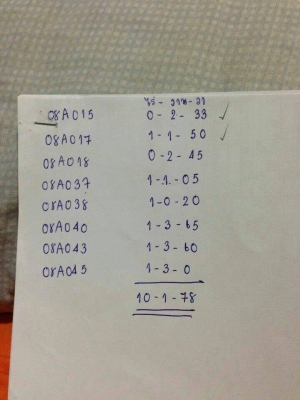 ไร่ - งาน - วา
08A015 0 - 2 - 33 ✓
08A017 1 - 1 - 50 ✓
08A018 0 - 2 - 45
08A037 1 - 1 - 05
08A038 1 - 0 - 20
08A040 1 - 3 - 65
08A043 1 - 3 - 60
08A045 1 - 3 - 0
10 - 1 - 78